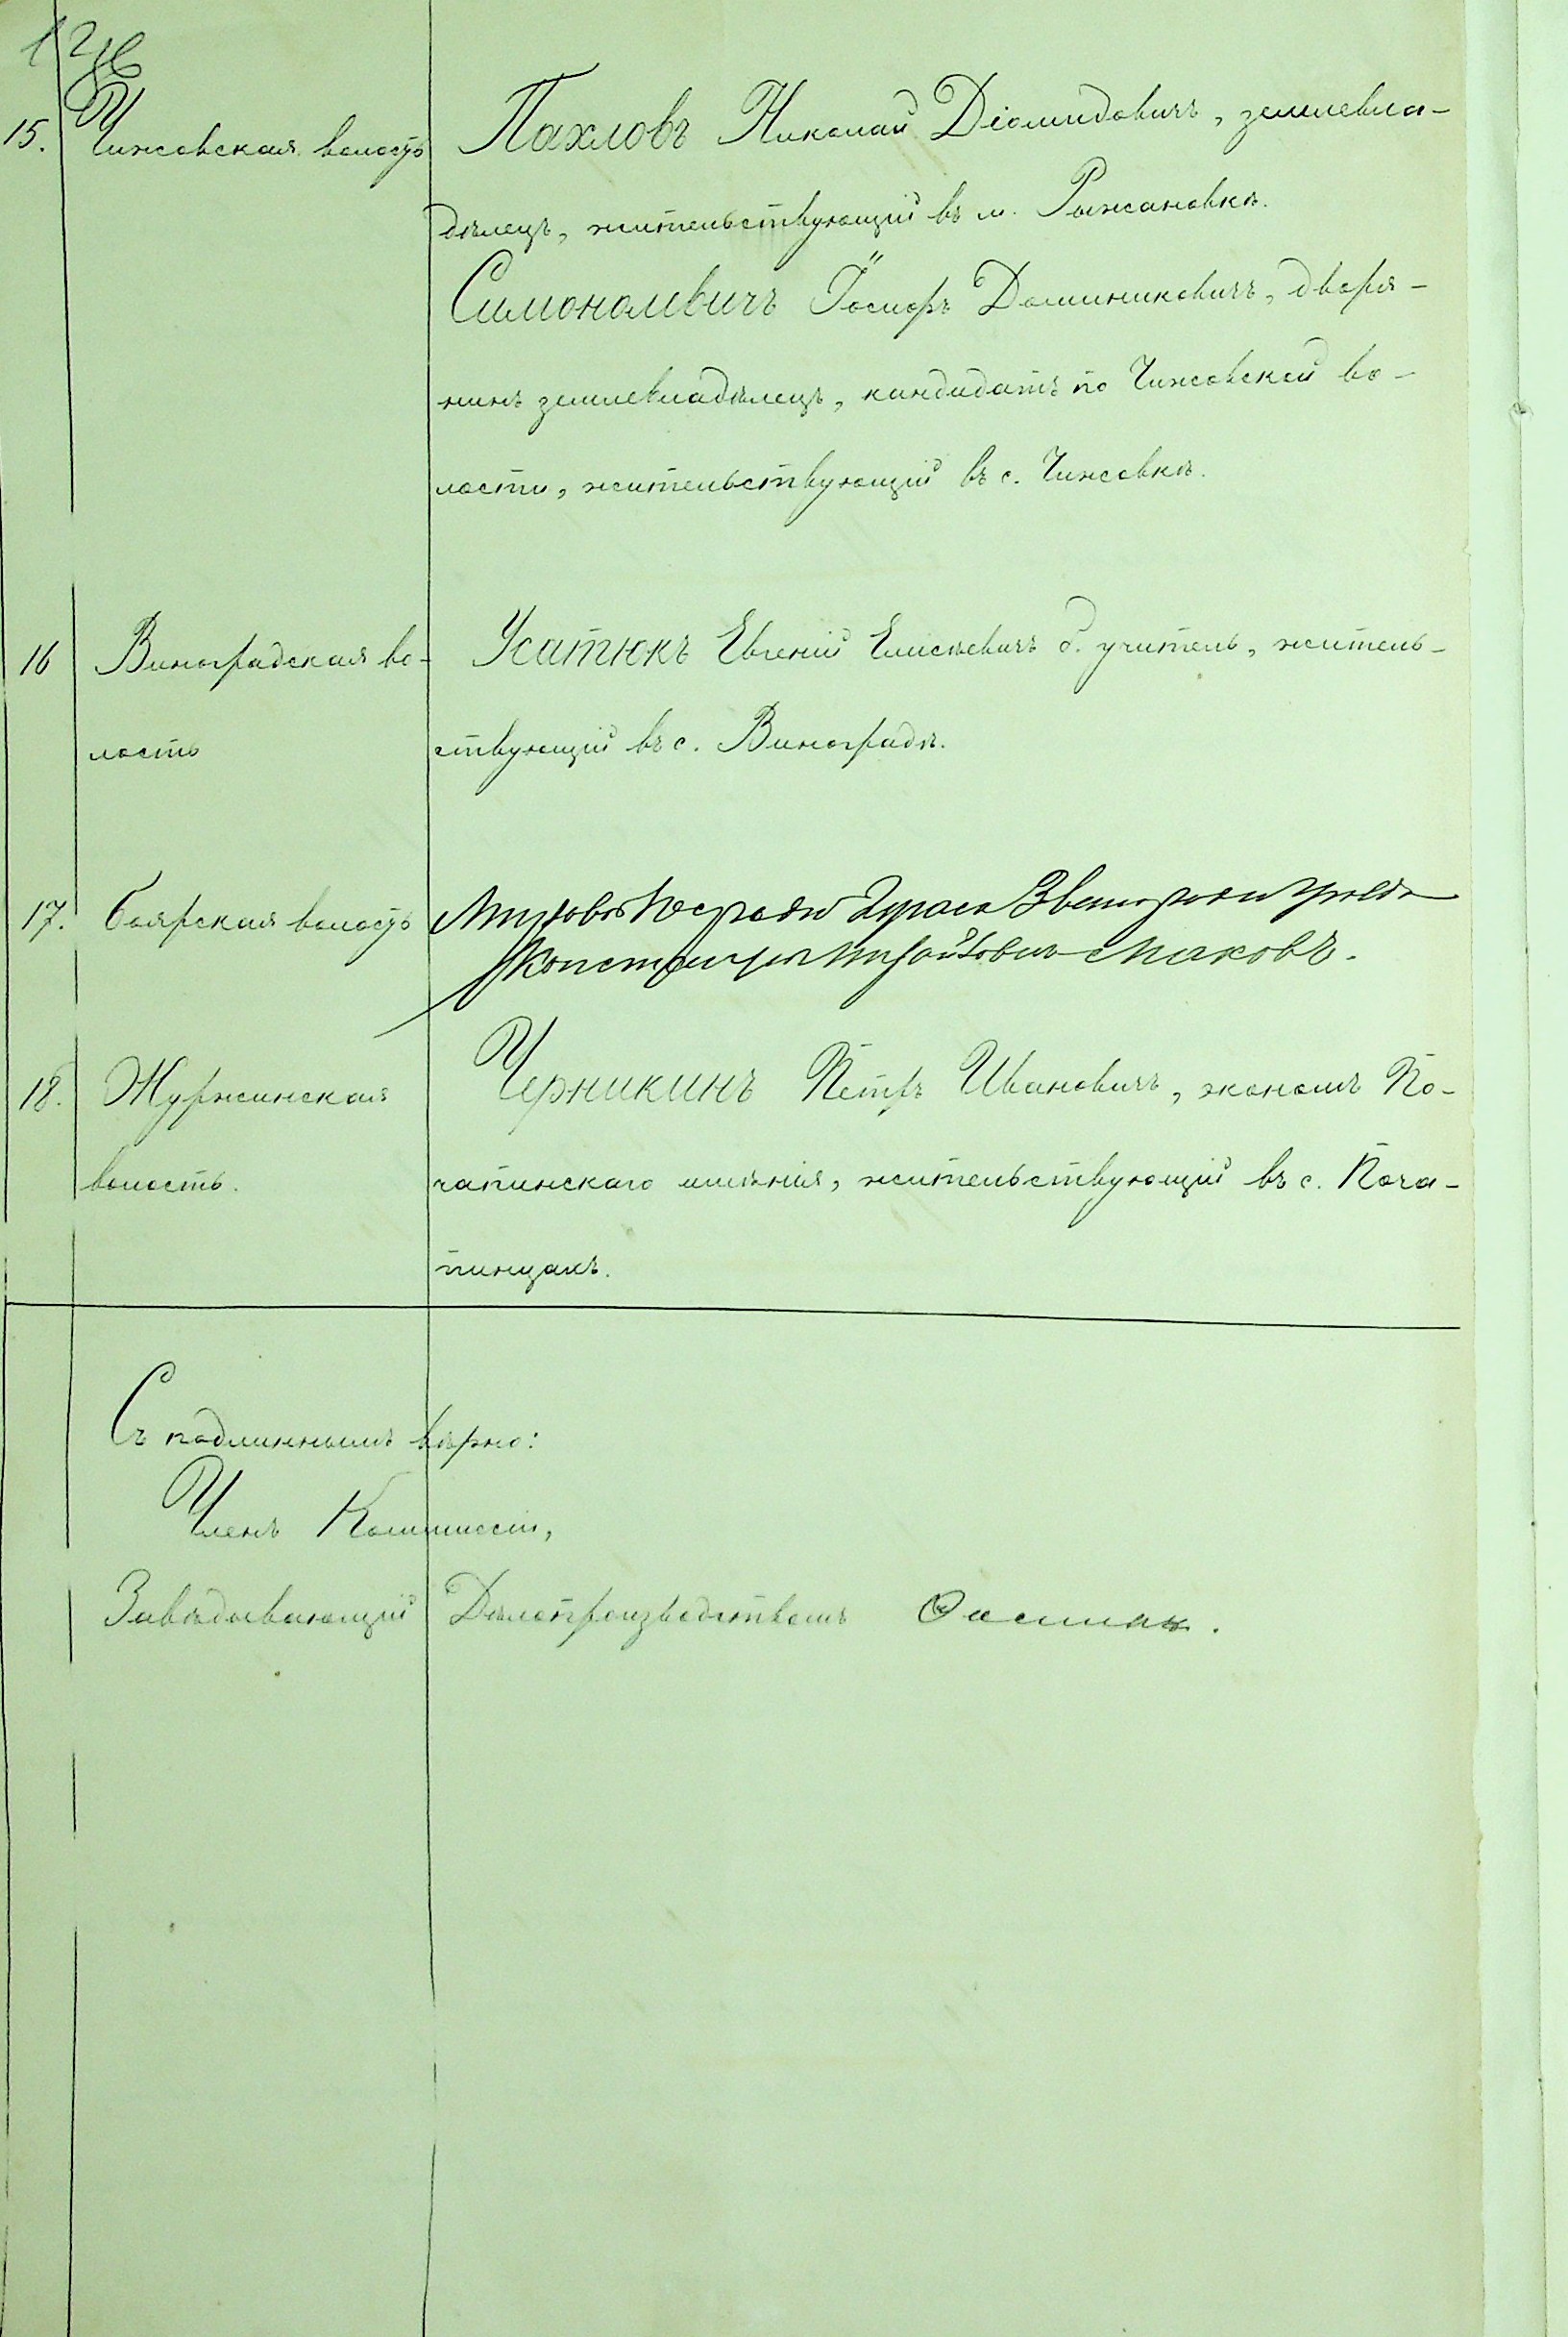 15. Чижовская волость Пахловъ Николай Діомидовичъ, землевла-
дѣлецъ, жительствующій въ м. Рыжановкѣ.
Симоноловичъ Іосифъ Доминиковичъ, дворя-
нинъ землевладѣлецъ, кандидатъ по Чижовской во-
лости, жительствующій въ с. Чижовкѣ.
16 Виноградская во- Усатюкъ Евгеній Елисѣевичъ б. учитель, житель-
лость ствующій въ с. Виноградѣ.
17. Боярская волость Мировой Посредн
Маковъ.
18. Журжинская Черникинъ Петръ Ивановичъ, экономъ По-
волость. чапинскаго имѣнія, жительствующій въ с. Поча-
пинцахъ.
Съ подлиннымъ вѣрно:
Членъ Коммиссіи,
Завѣдывающій Дѣлопроизводствомъ